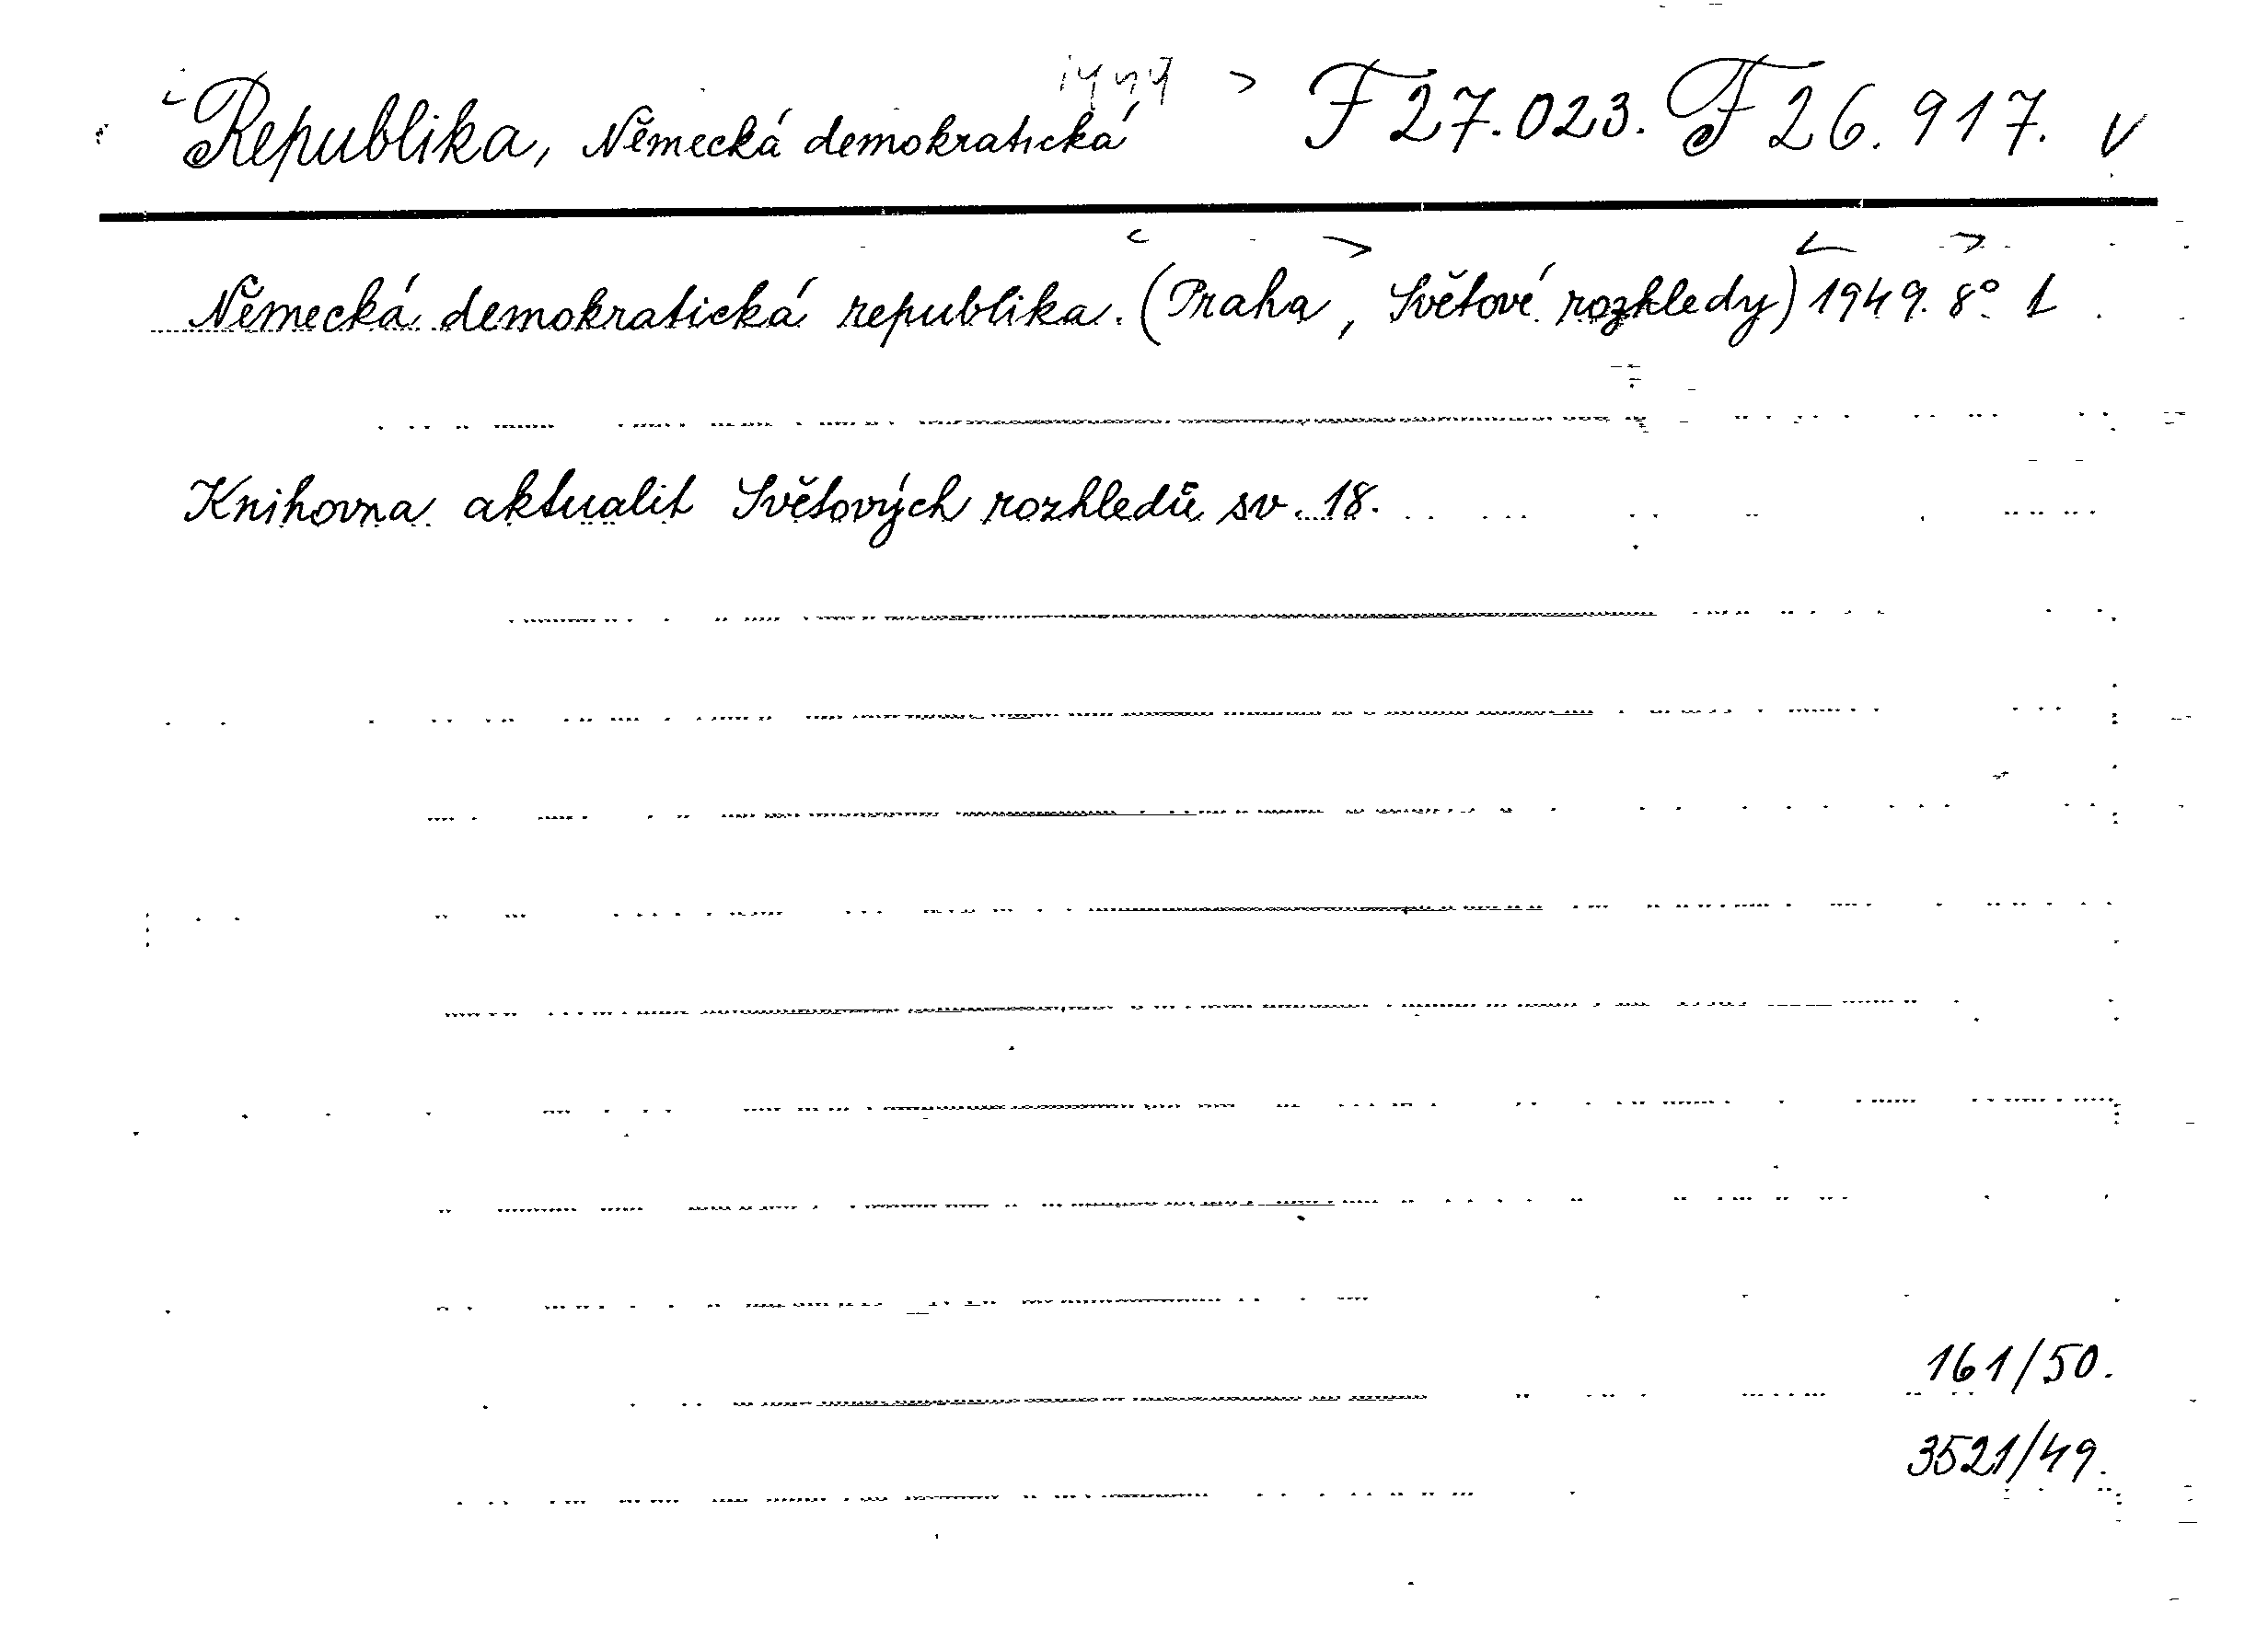 Republika, Německá demokratická 1949 F 27.023. F 26.917. V
Německá demokratická republika. (Praha, Světové rozhledy) 1949. 8° L
Knihovna aktualit Světových rozhledů sv. 18.
161/50.
3521/49.